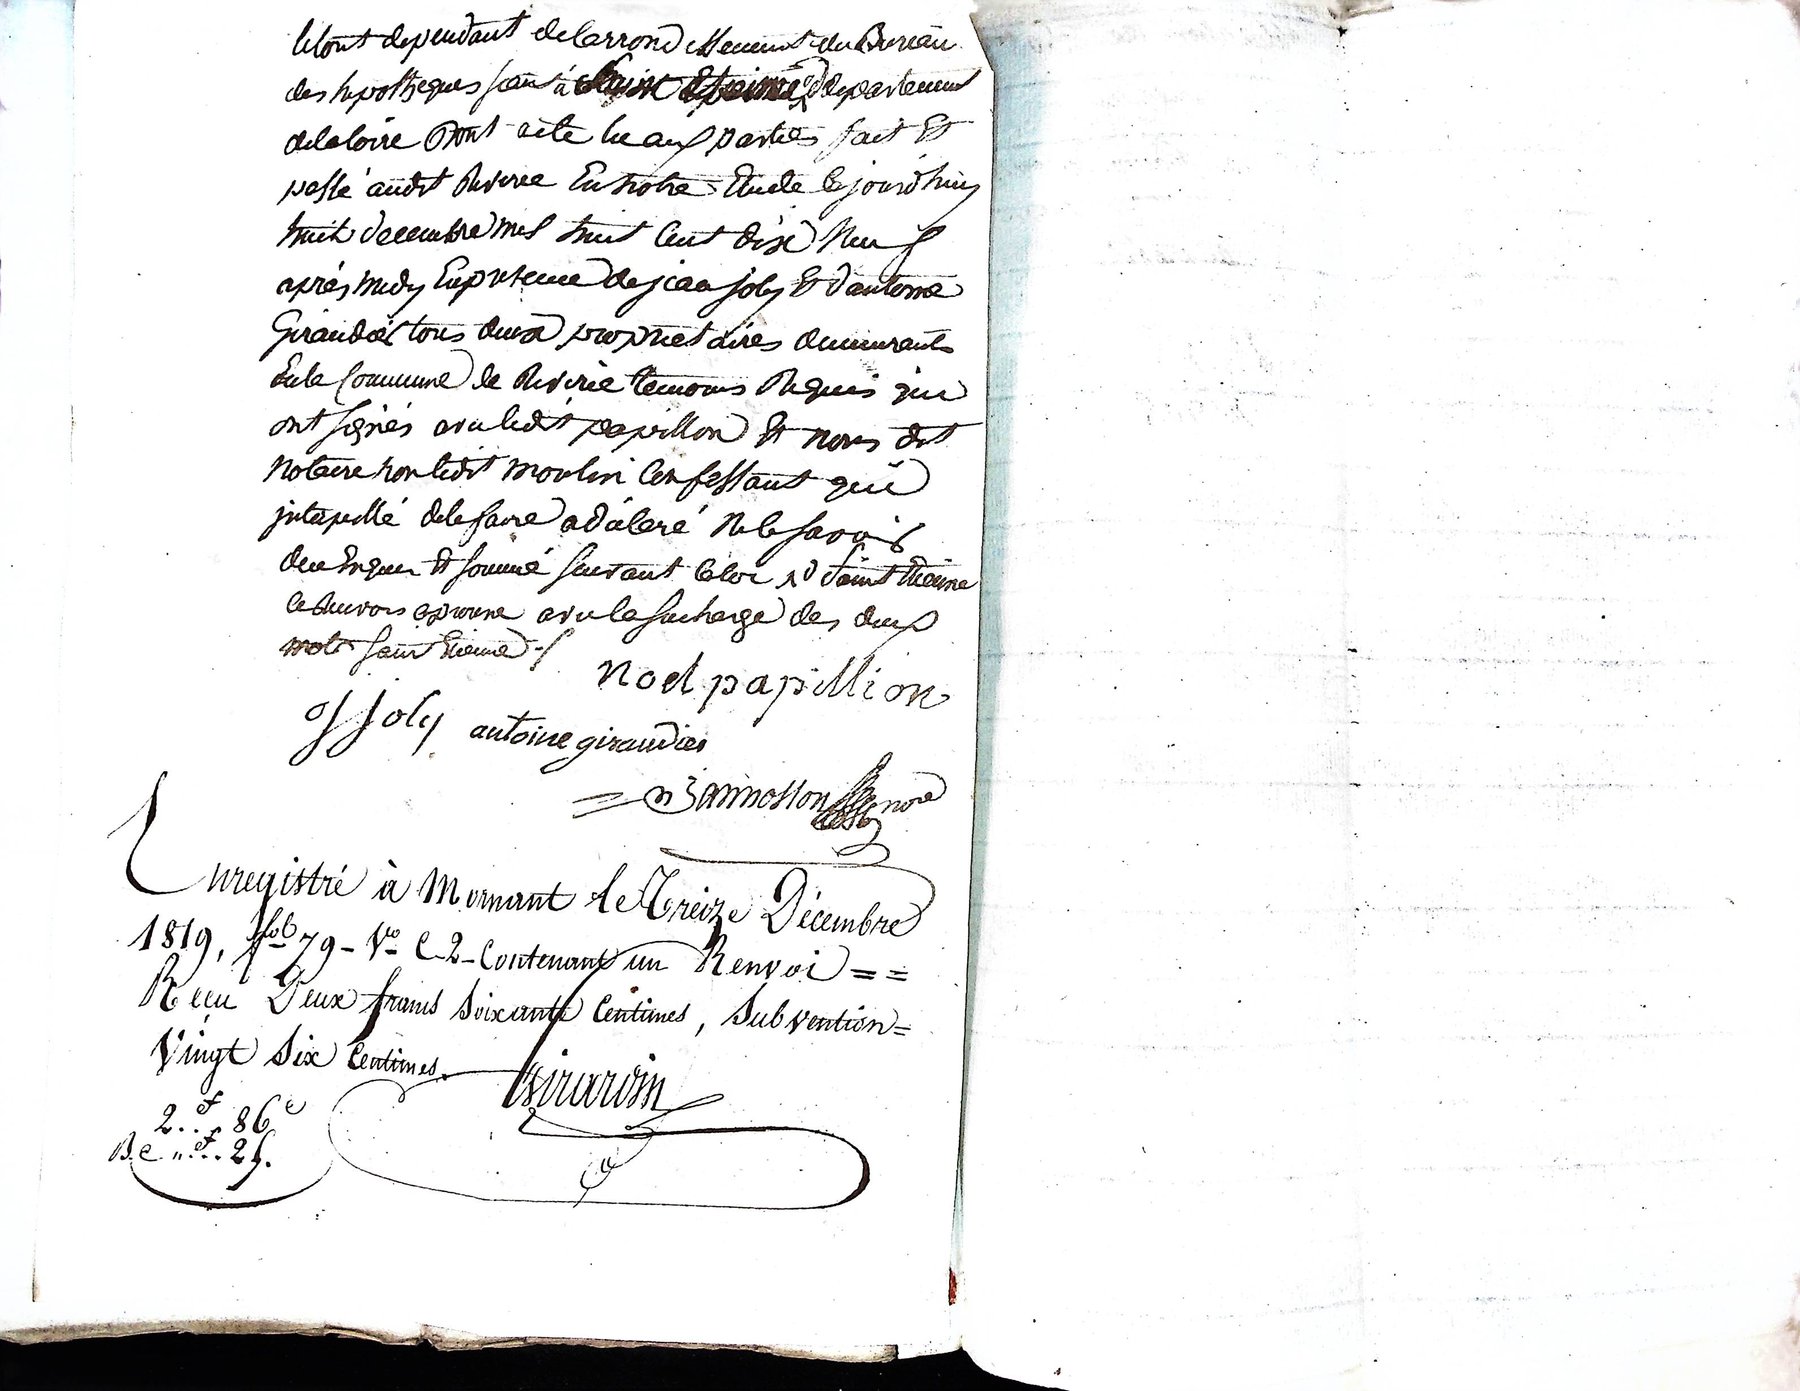 le tout dependant de larrondissement du Bureau
des hipotheques seant à Saint Etienne departement
de la loire Dont acte lu aux parties fait Et
passé audit Riverie En notre Etude le jourd'huy
huit decembre mil huit Cent dix Neuf
après midy En presence de jean joly Et d'antoine
Giraudier tous deux proprietaires demeurants
En la Commune de Riverie temoins Requis qui
ont signés avec ledit papillon Et nous dit
Notaire non ledit moulin Confessant qui
jntapellé de le faire a déclaré Ne le savoir
de ce Enquis Et sommé suivant la loi Saint Etienne
le Renvoi aprouvé avec la surcharge des deux
mots saint Etienne
Noel papillion
J Joly antoine giraudier
nore
Enregistré à Mornant le Treize Décembre
1819, fol 79 - Vo C 2 - Contenant un Renvoi = =
Reçu Deux francs Soixante Centimes, Subvention =
Vingt Six Centimes.
Girardin
2..f 86c